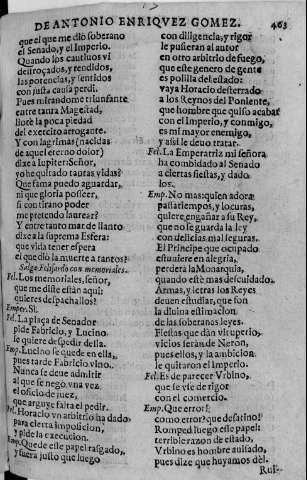 DE ANTONIO ENRIQVEZ GOMEZ. 463
que el que me dió soberano
el Senado, y el Imperio.
Quando los cautiuos vi
destroçados, y rendidos,
las potencias, y sentidos
con justa causa perdi.
Pues mirandome triunfante
entre tanta Magestad,
lloré la poca piedad
del exercito arrogante.
Y con lagrimas (nacidas
de aquel eterno dolor)
dixe a Iupiter: Señor,
yo he quitado tantas vidas?
Que fama puedo aguardar,
ni que gloria posseer,
si con tirano poder
me pretendo laurear?
Y entre tanto mar de llanto
dixe a la suprema Esfera:
que vida tener espera
el que dió la muerte a tantos?
Salga Felisardo con memoriales.
Fel. Los memoriales, señor,
que me diste estàn aqui:
quieres despachallos?
Emper. Si.
Fel. La plaça de Senador
pide Fabricio, y Lucino
se quiere despedir della.
Emp. Lucino se quede en ella,
pues tarde Fabricio vino.
Nunca se deue admitir
al que se negò vna vez
el oficio de juez,
que arguye falta el pedir.
Fel. Horacio vn arbitrio ha dado
para cierta imposicion,
y pide la execucion.
Emp. Que de este papel rasgado,
y fuera justo que luego
con diligencia, y rigor
le pusieran al autor
en otro arbitrio de fuego,
que este genero de gente
es polilla del estado:
vaya Horacio desterrado
a los Reynos del Poniente,
que hombre que quiso acabar
con el Imperio, y conmigo,
es mi mayor enemigo,
y assi le deuo tratar.
Fel. La Emperatriz mi señora
ha combidado al Senado
a ciertas fiestas, y dado
los.
Emp. No mas: quien adora
passatiempos, y locuras,
quiere engañar a su Rey,
que no se guarda la ley
con delicias mal seguras.
El Principe que ocupado
estuuiere en alegria,
perderà la Monarquia,
quando estè mas descuidado.
Armas, y letras los Reyes
deuen estudiar, que son
la diuina estimacion
de las soberanas leyes.
Fiestas que dàn vituperio,
vicios seràn de Neron,
pues ellos, y la ambicion
le quitaron el Imperio.
Fel. Es de parecer Vrbino,
que se vse de rigor
con el comercio.
Emp. Que error!
como error? que desatino!
Romped luego este papel:
terrible razon de estado,
Vrbino es hombre auisado,
pues dize que huyamos dèl.